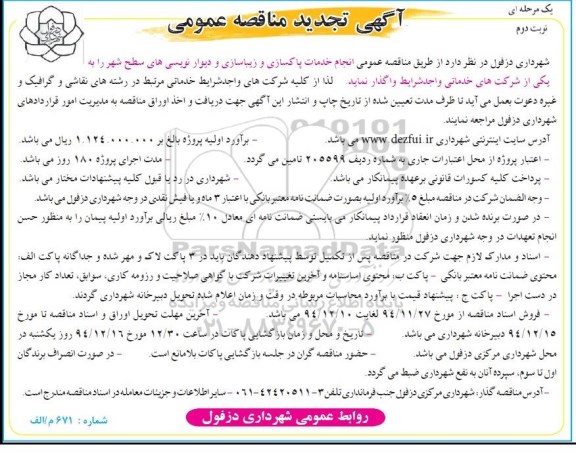 یک مرحله ای
نوبت دوم
آگهی تجدید مناقصه عمومی
شهرداری دزفول در نظر دارد از طریق مناقصه عمومی انجام خدمات پاکسازی و زیباسازی و دیوار نویسی های سطح شهر را به
یکی از شرکت های خدماتی واجدشرایط واگذار نماید. لذا از کلیه شرکت های واجدشرایط خدماتی مرتبط در رشته های نقاشی و گرافیک و
غیره دعوت بعمل می آید تا ظرف مدت تعیین شده از تاریخ چاپ و انتشار این آگهی جهت دریافت و اخذ اوراق مناقصه به مدیریت امور قراردادهای
شهرداری دزفول مراجعه نمایند.
آدرس سایت اینترنتی شهرداری www.dezful.ir می باشد. - برآورد اولیه پروژه بالغ بر ۱.۱۲۴.۰۰۰.۰۰۰ ریال می باشد.
- اعتبار پروژه از محل اعتبارات جاری به شماره ردیف ۲۰۵۵۹۹ تامین می گردد. - مدت اجرای پروژه ۱۸۰ روز می باشد.
- پرداخت کلیه کسورات قانونی برعهده پیمانکار می باشد. - شهرداری در رد یا قبول کلیه پیشنهادات مختار می باشد.
- وجه الضمان شرکت در مناقصه مبلغ ۵٪ برآورد اولیه بصورت ضمانت نامه معتبر بانکی با اعتبار ۳ ماه و یا فیش نقدی در وجه شهرداری دزفول می باشد.
- در صورت برنده شدن و زمان انعقاد قرارداد پیمانکار می بایستی ضمانت نامه ای معادل ۱۰٪ مبلغ ریالی برآورد اولیه پیمان را به منظور حسن
انجام تعهدات در وجه شهرداری دزفول منظور نماید.
- اسناد و مدارک لازم جهت شرکت در مناقصه پس از تکمیل توسط پیشنهاد دهندگان باید در ۳ پاکت لاک و مهر شده و جداگانه پاکت الف:
محتوی ضمانت نامه معتبر بانکی - پاکت ب: محتوی اساسنامه و آخرین تغییرات شرکت با گواهی صلاحیت و رزومه کاری، سوابق، تعداد کار مجاز
در دست اجرا - پاکت ج: پیشنهاد قیمت با برآورد محاسبات مربوطه در وقت و زمان اعلام شده تحویل دبیرخانه شهرداری گردند.
- فروش اسناد مناقصه از مورخ ۹۴/۱۱/۲۷ لغایت ۹۴/۱۲/۱۰ می باشد. - آخرین مهلت تحویل اوراق و اسناد مناقصه تا مورخ
۹۴/۱۲/۱۵ دبیرخانه شهرداری می باشد. - تاریخ و محل و زمان بازگشایی پاکات در ساعت ۱۲/۳۰ مورخ ۹۴/۱۲/۱۶ روز یکشنبه در
محل شهرداری مرکزی دزفول می باشد. - حضور مناقصه گران در جلسه بازگشایی پاکات بلامانع است. - در صورت انصراف برندگان
اول تا سوم، سپرده آنان به نفع شهرداری ضبط می گردد.
- آدرس مناقصه گذار: شهرداری مرکزی دزفول جنب فرمانداری تلفن ۳-۴۲۴۲۰۵۱۱-۰۶۱ - سایر اطلاعات و جزئیات معامله در اسناد مناقصه مندرج است.
روابط عمومی شهرداری دزفول
شماره: ۶۷۱ م/الف
ParsNamadData
پایگاه اطلاع رسانی مناقصه و مزایده
۰۲۱-۸۸۳۴۹۶۷۰-۵